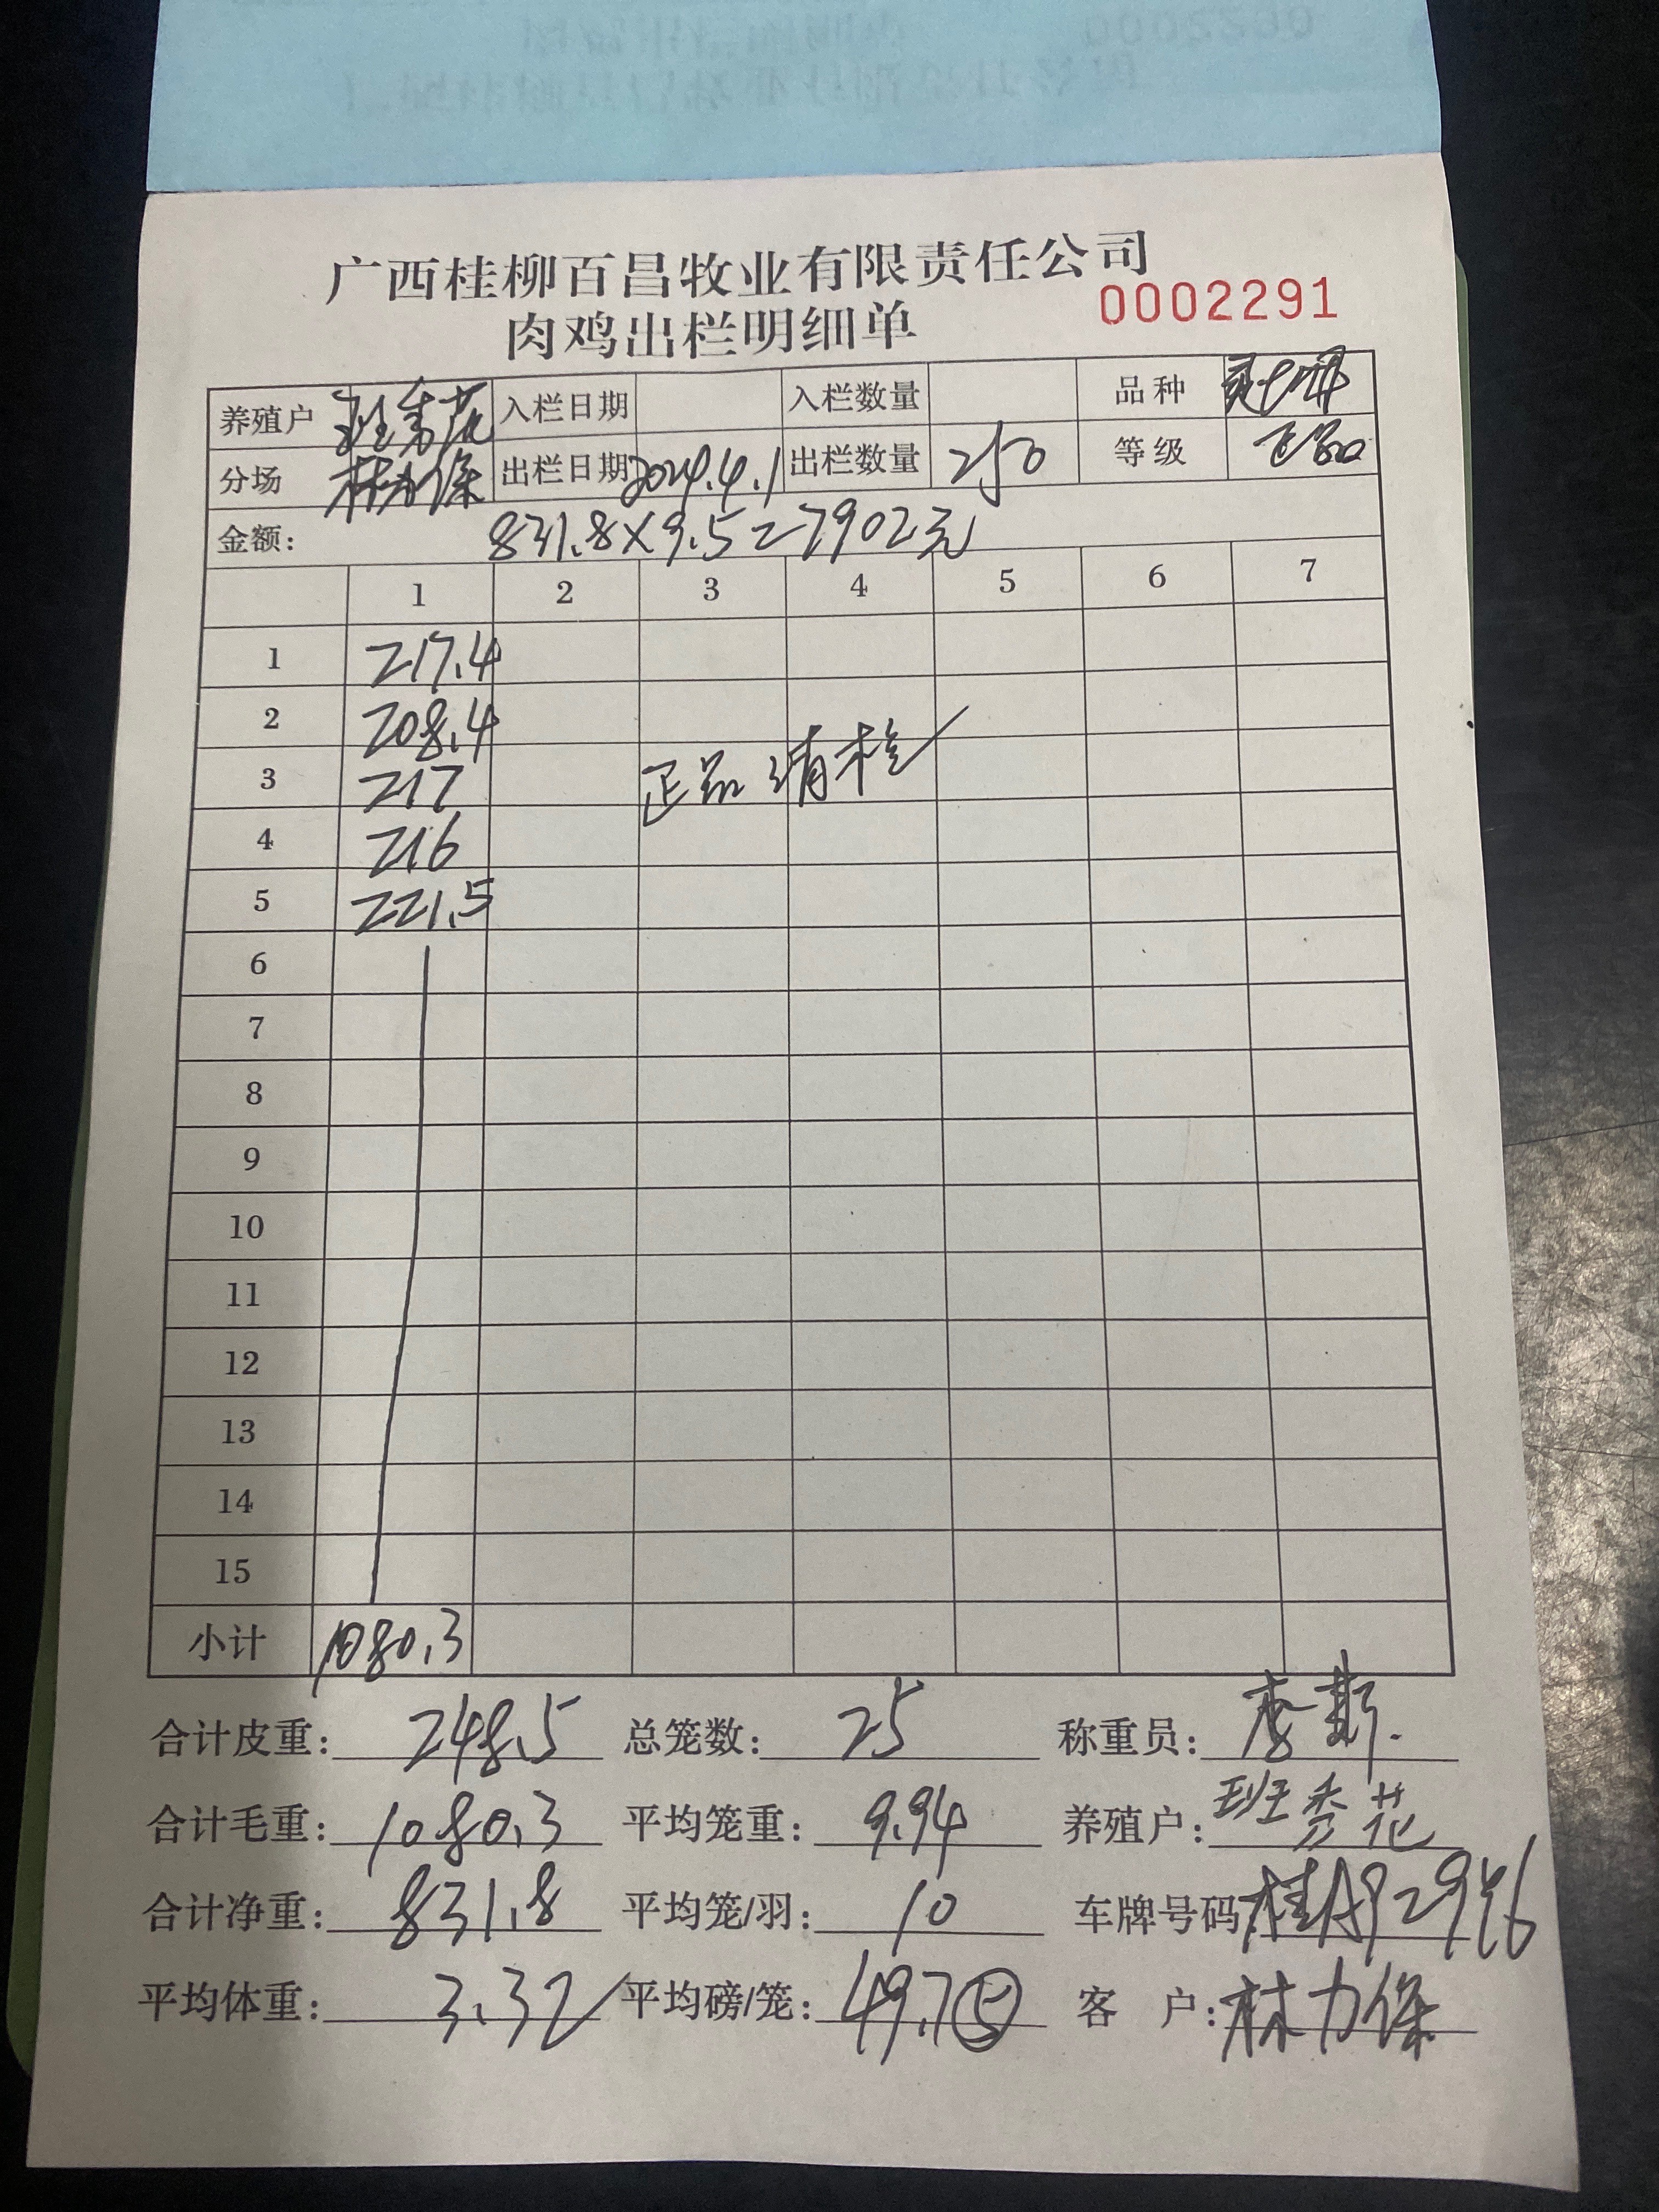 广西桂柳百昌牧业有限责任公司
0002291
肉鸡出栏明细单
养殖户 班秀花 入栏日期 入栏数量 品种
分场 林力保 出栏日期 2024.4.1 出栏数量 250 等级 正品
金额: 831.8×9.5=7902元
1 2 3 4 5 6 7
1 217.4
2 208.4
3 217 正品 清栏
4 216
5 221.5
6
7
8
9
10
11
12
13
14
15
小计 1080.3
合计皮重: 248.5 总笼数: 25 称重员:
合计毛重: 1080.3 平均笼重: 9.94 养殖户: 班秀花
合计净重: 831.8 平均笼/羽: 10 车牌号码:
平均体重: 3.32 平均磅/笼: 49.7⑤ 客 户: 林力保